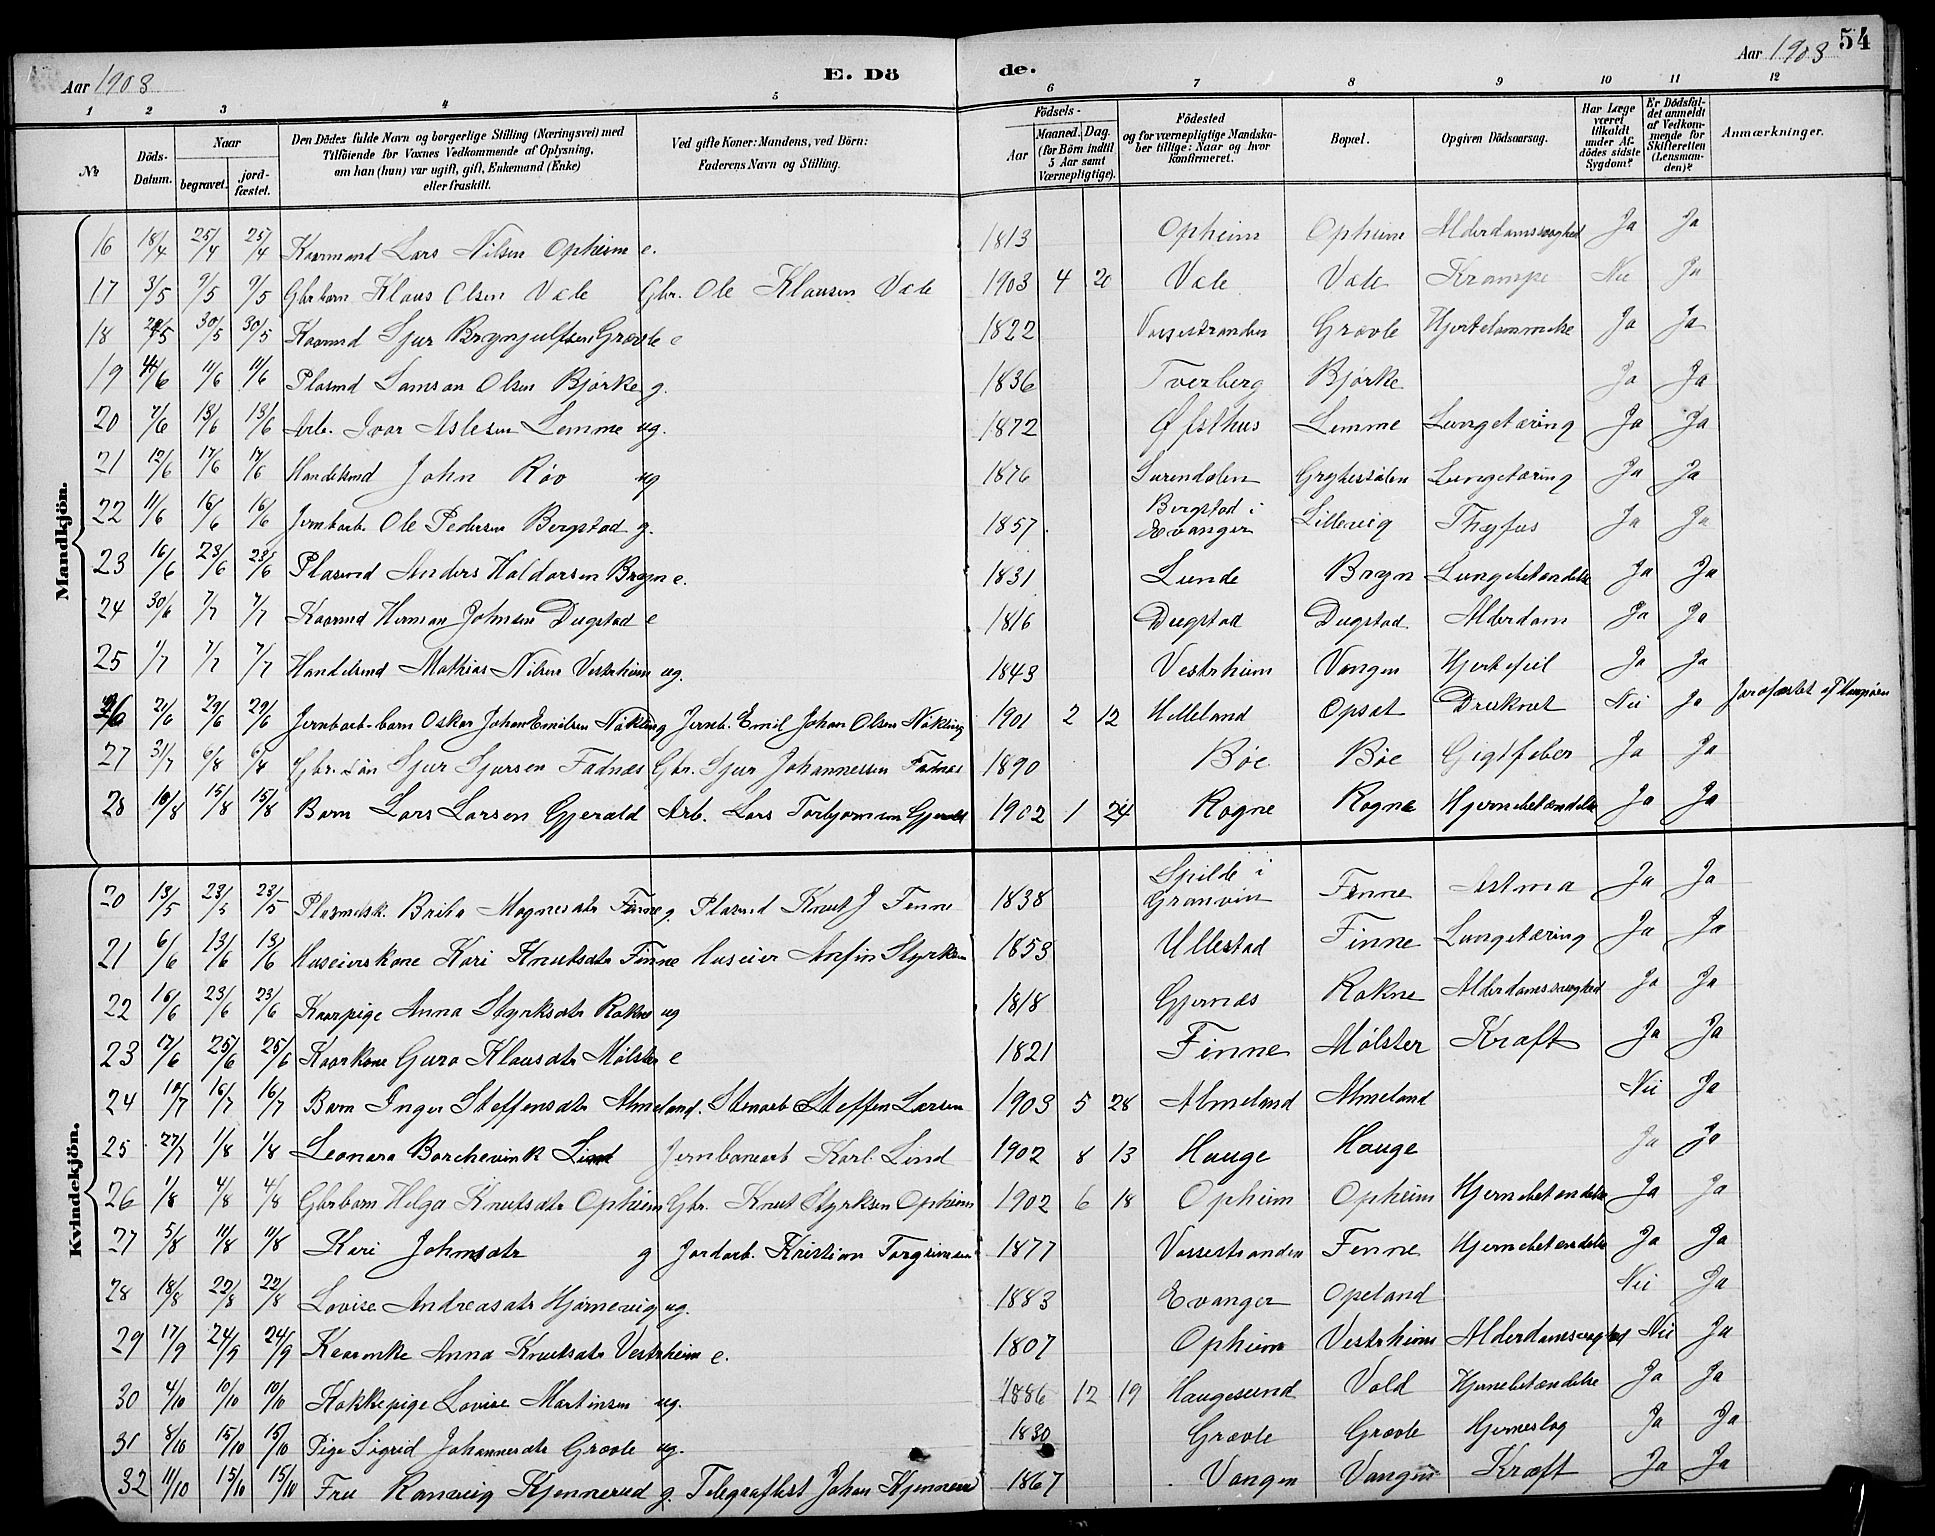 Aar 1903
E. Dö
de.
Aar 1903
54
1 2 3 4 5 6 7 8 9 10 11 12
№
Döds-Datum.
Naar
begravet.
jord-fæstet.
Den Dödes fulde Navn og borgerlige Stilling (Næringsvei) med
Tilföiende for Voxnes Vedkommende af Oplysning,
om han (hun) var ugift, gift, Enkemand (Enke)
eller fraskilt.
Ved gifte Koner: Mandens, ved Börn:
Faderens Navn og Stilling.
Födsels-
Aar
Maaned. Dag.
(for Börn indtil
5 Aar samt
Værnepligtige).
Födested
og for værnepligtige Mandska-
ber tillige: Naar og hvor
konfirmeret.
Bopæl.
Opgiven Dödsaarsag.
Har Læge
været
tilkaldt
under Af-
dödes sidste
Sygdom?
Er Dödsfal-
det anmeldt
af Vedkom-
mende for
Skifteretten
(Lensman-
den)?
Anmærkninger.
Mandkjön.
16 18/4 25/4 25/4 Kaarmand Lars Nilsen Opheim e. 1813 Opheim Opheim Alderdomssvaghed Ja Ja
17 3/5 9/5 9/5 Gbr barn Klaus Olsen Væle Gbr. Ole Klausen Væle 1903 4 20 Væle Væle Krampe Nei Ja
18 30/5 30/5 Kaarmd Sjur Brynjulfsen Grævle e 1822 Vossestranden Grævle Hjertelammelse Ja Ja
19 11/6 11/6 Plasmd Samson Olsen Bjørke g. 1836 Tverberg Bjørke Ja Ja
20 7/6 13/6 13/6 Arb. Ivar Aslesen Lemme ug. 1872 Lemme Lungetæring Ja Ja
21 12/6 17/6 17/6 Handelsmd John Røv ug 1876 Surendalen Lungetæring Ja Ja
22 11/6 16/6 16/6 Jernbarb. Ole Pedersen Bergstad g. 1857 Bergstad i Evanger Lillevig Thyfus Ja Ja
23 16/6 23/6 23/6 Plasmd Anders Haldorsen Bryn e. 1831 Lunde Bryn Lungebetændelse Ja Ja
24 30/6 7/7 7/7 Kaarmd Herman Johnsen Dugstad e 1816 Dugstad Dugstad. Alderdom Ja Ja
25 1/7 7/7 7/7 Handelsmd Mathias Nilsen Vestrheim ug. 1843 Vestrheim Vangen Hjertefeil Ja Ja
26 21/6 29/6 29/6 Jernbarb.-barn Oskar Johan Emilsen Nökling Jernb. Emil Johan Olsen Nökling 1901 2 12 Helleland Opsat Druknet Nei Ja
27 31/7 6/8 6/8 Gbr. søn Sjur Sjursen Fadnæs Gbr. Sjur Johannessen Fadnæs 1890 Bøe Bøe Gigtfeber Ja Ja
28 10/8 15/8 15/8 Barn Lars Larsen Gjerald Arb. Lars Torbjørnsen Gjerald 1902 1 24 Rogne Rogne Hjernebetændelse Ja Ja
Kvindekjön.
20 13/5 23/5 23/5 Plasmdsk. Brita Magnesdtr Finne g Plasmd Knut J Finne 1838 Spilde i Granvin Finne Astma Ja Ja
21 6/6 13/6 13/6 Huseierskone Kari Knutsdtr Finne Huseier Anfin Styrksen 1853 Ullestad Finne Lungetæring Ja Ja
22 16/6 23/6 23/6 Kaarpige Anna Styrksdtr Rokne ug 1818 Gjernæs Rokne Alderdomssvaghed Ja Ja
23 17/6 25/6 25/6 Kaarkone Guro Klausdtr Mølster e 1821 Finne Mølster Kræft Ja Ja
24 10/7 16/7 16/7 Barn Inger Steffensdtr Almeland. Stenarb Steffen Larsen 1903 5 28 Almeland Almeland Nei Ja
25 27/7 1/8 1/8 Leonora Borchevink Lind Jernbanearb Karl Lind 1902 8 13 Hauge Hauge Ja Ja
26 1/8 4/8 4/8 Gbrbarn Helga Knutsdtr Opheim Gbr. Knut Styrksen Opheim 1902 6 18 Opheim Opheim Hjernebetændelse Ja Ja
27 5/8 11/8 11/8 Kari Johnsdtr g Jordarb. Kristian Torgrimsen 1877 Vossestranden Finne Hjernebetændelse Ja Ja
28 18/8 22/8 22/8 Lovise Andreasdtr Hjørnevig ug. 1883 Evanger Opeland Nei Ja
29 17/9 24/9 24/9 Kaarenke Anna Knutsdtr Vestrheim e. 1807 Opheim Vestrheim Alderdomssvaghed Nei Ja
30 4/10 10/10 10/10 Kokkepige Lovise Martinsen ug. 1886 12 19 Haugesund Vold Hjernebetændelse Ja Ja
31 8/10 15/10 15/10 Pige Sigrid Johannesdtr Græøvle ug. 1830 Græøvle Græøvle Hjerneslag Ja Ja
32 11/10 15/10 15/10 Fru Ranveig Kjennerud g. Telegrafist Johan Kjennerud 1867 Vangen Vangen Kræft Ja Ja